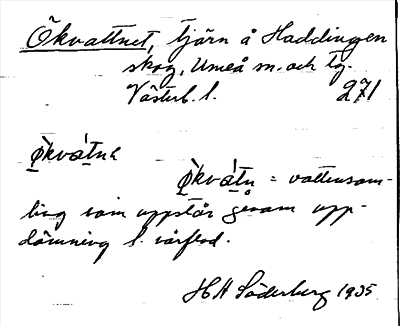 Ökvattnet, tjärn å Haddingen
skog, Umeå sn. och tg.
Västerb. l. 271
Ökvatnɛ
Ökvatn = vattensam-
ling som uppstår genom upp-
dämning l. vårflod.
H A Söderberg 1935